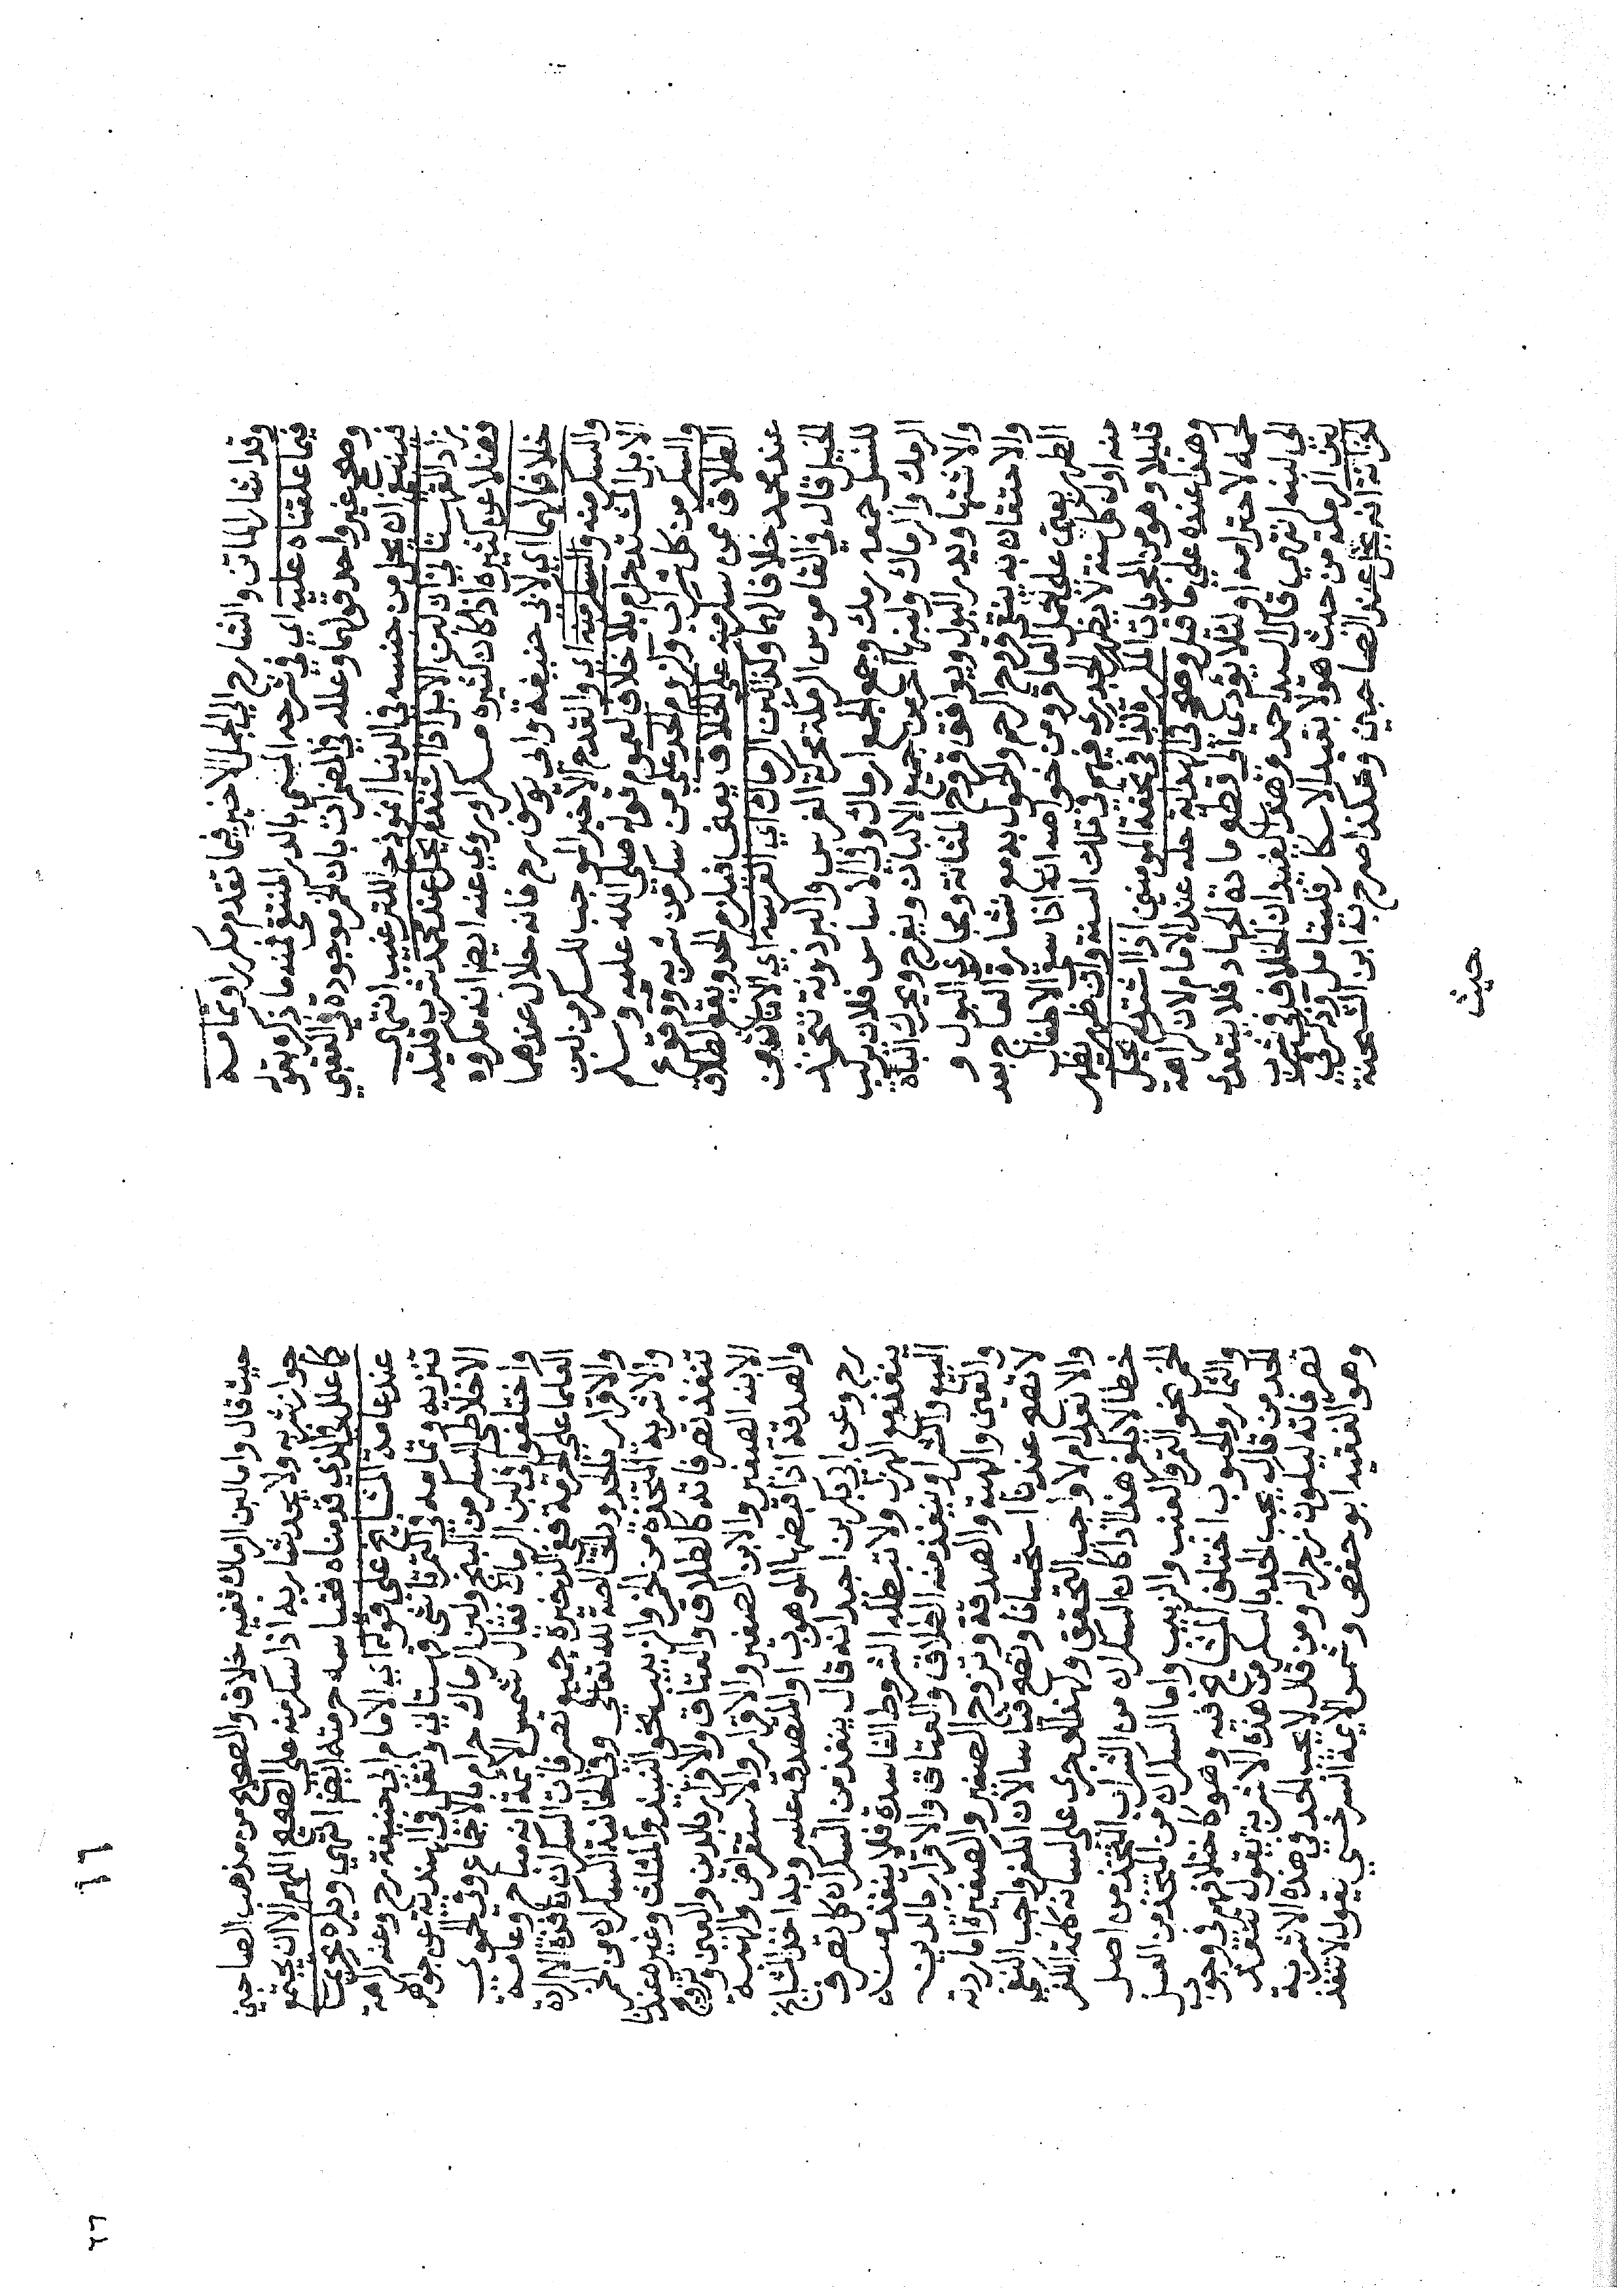 وقد اشار الماتن والشارح الى المحل الاخير فيما تقدم مكررا وتمامه
فيما علقناه عليه اي في شرحه المسمى بالدر المنتقى فمنه ما ذكره بقوله
وصحح غير واحد قولهما وعلله في المضمرات بان الخمر موجودة في العقبى
فينبغي ان يحل من جنسه في الدنيا انموذج للترغيب انتهى
زاد القهستاني ان لبن الابل اذا اشتد لم يحل عند محمد شرب قليله
فضلا عن كثيره اذ كان كثيره مسكرا وروي عنه ايضا انه مكروه
خلافا لهما اي لابي حنيفة وابي يوسف رح فانه حلال عندهما
والسكر منه والسكر منه اي والقدح الاخير الموجب للسكر من لبن
الابل المشتد حرام بلا خلاف لعموم قوله صلى الله عليه وسلم
والسكر من كل شراب ولزوم الحد على من سكر من شربه ووقوع
الطلاق ممن سكر منه على الخلاف يعني فيلزم الحد ويقع الطلاق
عند محمد خلافا لهما وكذا لبن الرماك اي الفرسه اي الاناث من
الخيل قال في القاموس الرمكة محركة الفرس والبرذونة تتخذ
للنسل جمعه رمك وجمع الجمع ارماك وفي الاساس فلان يركب
الرمك والرماك ولبنها احر من جميع الالبان ويفرح ويحرك الباه
والاشتها ويدر البول ويوافق قروح المثانة ومجاري البول و
والاحتقان به ينقي قروح الرحم والحمول به مع نشارة العاج بعد
الطهر يعين على حمل العاقر ومن خواصه انه اذا سقي الاطفال
منه اول كل سنة لا يظهر الجدري فيهم في تلك السنة وان ظهر يظهر
قليلا وهو من المجربات المكررة كذا في تحفة المومنين اذا اشتد لم يحل
وهذا عنده على ما قيل وصحح في الهداية حله عند الامام لان كراهة
لحمه لاحترامه او لئلا يؤدي الى قطع مادة الجهاد فلا يتعدى
الى لبنه انتهى قال السيد احمد وهذا يفيد ان الخلاف في شرب
لبن الرمكة من حيث هو لا بقيد الاسكار فليتامل وذكر في
الخزانة انه يحل عند الصاحبين وهكذا صرح به ابن الشحنة
حيث
١٦
حيث قال واما لبن الرماك ففيه خلاف والصحيح من مذهب الصاحبين
جواز شربه ولا يحد شاربه اذا سكر منه على الصحيح اللهم الا ان يجتمع
كما علل والذي قدمناه فقياسه حرمته ايضا انتهى ويكره تحريما
عند عامة المشايخ على قوله اي الامام ابي حنيفة رح وعند كراهة
تنزيه وتمامه في التمرتاشي قهستاني ونقل في الهندية عن جواهر
الاخلاطي السكر من البنج ولبن الرماك حرام بالاجماع وفي الحموي
واختلفوا في لبن الرماك فقال شمس الائمة انه مباح وعامة
العلما على حرمته فع الذخيرة جميع تصرفات السكران نافذة الا الردة
والاقرار بالحدود الخالصة لله تعالى وفي الخانية السكران من الخمر
والاشربة المتخذة من التمر والزبيب نحو النبيذ والمثلث وغيره عندنا
تنفذ تصرفاته كالطلاق والعتاق والاقرار بالدين والعين وتزويج
الابنة الصغيرة والابن الصغير والاقرار والاستقراض والهبة
والصدقة اذا قبضها الموهوب او المتصدق عليه وبه اخذ المشايخ
رح وعن ابي بكر بن احمد انه قال ينفذ من السكران كل تصرف
ينفذ مع الهزل ولا تبطله الشروط الفاسدة فلا ينفذ منه
البيع والشرا وينفذ منه الطلاق والعتاق والاقرار بالدين
والعين والهبة والصدقة وتزويج الصغير والصغيرة اما ردته
لا تصح عندنا استحسانا وتصح قياسا لان الكفر واجب النفي
والاعدام لا واجب التحقق ولهذا لو جرى على لسانه كلمة الكفر
خطا لا يكفر هذا اذا كان السكران من الشراب المتخذ من اصل
الخمر نحو التمر والعنب والزبيب واما السكران من المتخذ من العسل
والثمار والحبوب اختلف المشايخ فيه وهو كاختلافهم في وجوب
الحد من قال يجب الحد بالسكر من هذه الاشربة يقول تنفذ
تصرفاته ليكون زجرا له ومن قال لا يجب الحد في هذه الاشربة
وهو الفقيه ابو جعفر وشمس الايمة السرخسي يقول لا تنفذ